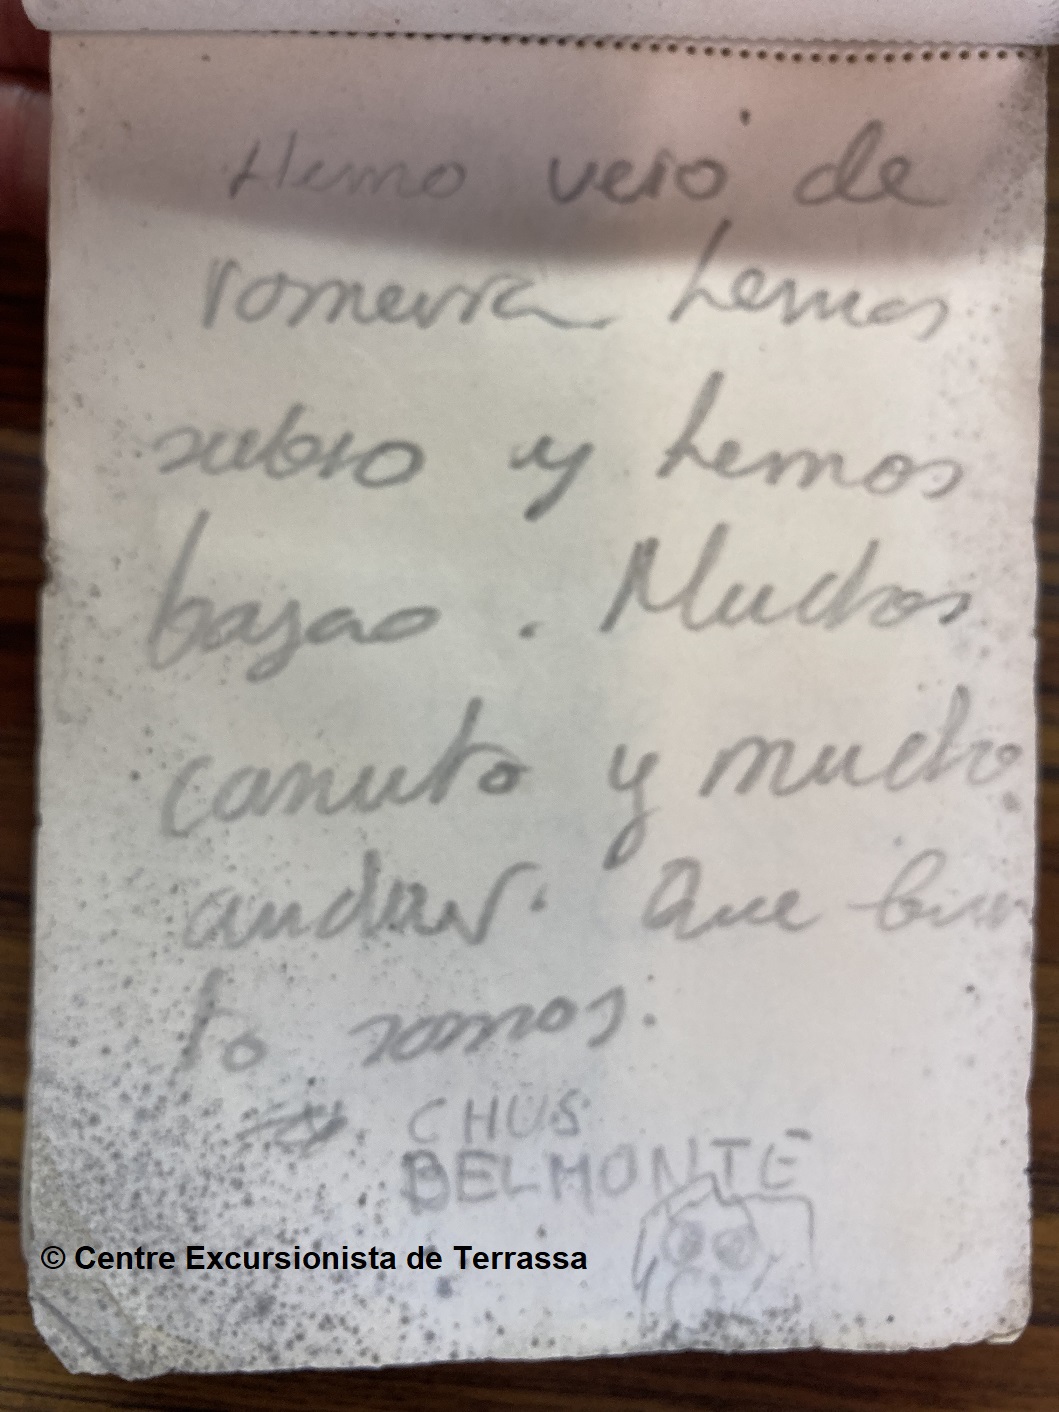 Hemo veio de
romeria hemos
subio y hemos
bajao. Muchos
canuto y mucho
andar. Que
to somos.
CHUS
BELMONTE
© Centre Excursionista de Terrassa